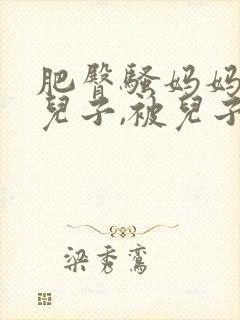 肥臀骚妈妈
兒子,被兒子
梁秀鸾